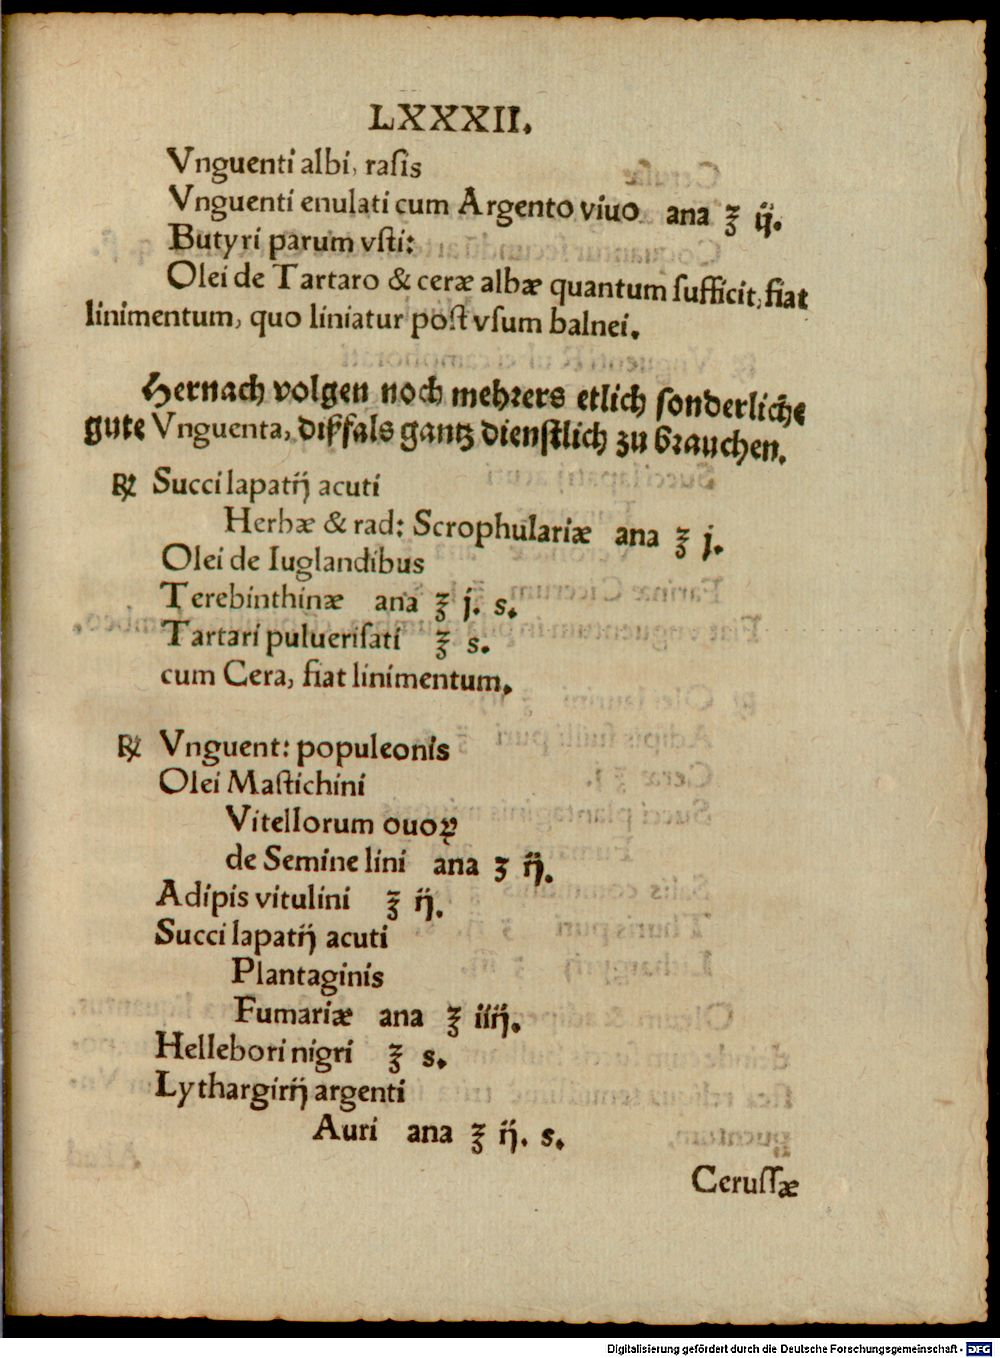 LXXXII.
Vnguenti albi, rasis
Vnguenti enulati cum Argento viuo ana ℥ ij.
Butyri parum vsti:
Olei de Tartaro & ceræ albæ quantum sufficit, fiat
linimentum, quo liniatur post vsum balnei.
Hernach volgen noch mehrers etlich sonderliche
gute Vnguenta, dißfals gantz dienstlich zu brauchen.
℞ Succi lapatij acuti
Herbæ & rad: Scrophulariæ ana ℥ j.
Olei de Iuglandibus
Terebinthinæ ana ℥ j. s.
Tartari puluerisati ℥ s.
cum Cera, fiat linimentum.
℞ Vnguent: populeonis
Olei Mastichini
Vitellorum ouoꝝ
de Semine lini ana ʒ ij.
Adipis vitulini ℥ ij.
Succi lapatij acuti
Plantaginis
Fumariæ ana ℥ iiij.
Hellebori nigri ℥ s.
Lythargirij argenti
Auri ana ℥ ij. s.
Cerussæ
Digitalisierung gefördert durch die Deutsche Forschungsgemeinschaft - DFG